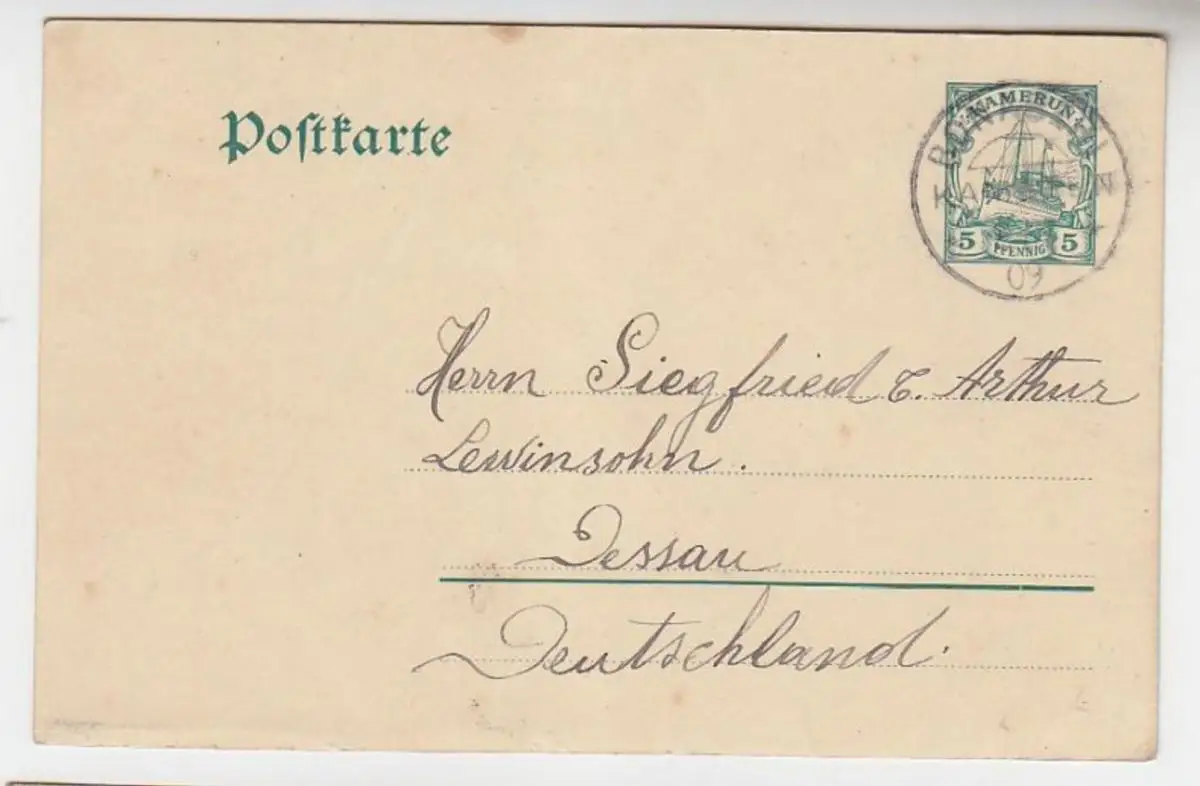 Postkarte
KAMERUN
5 PFENNIG 5
KAMERUN
09
Herrn Siegfried & Arthur
Lewinsohn.
Dessau
Deutschland.